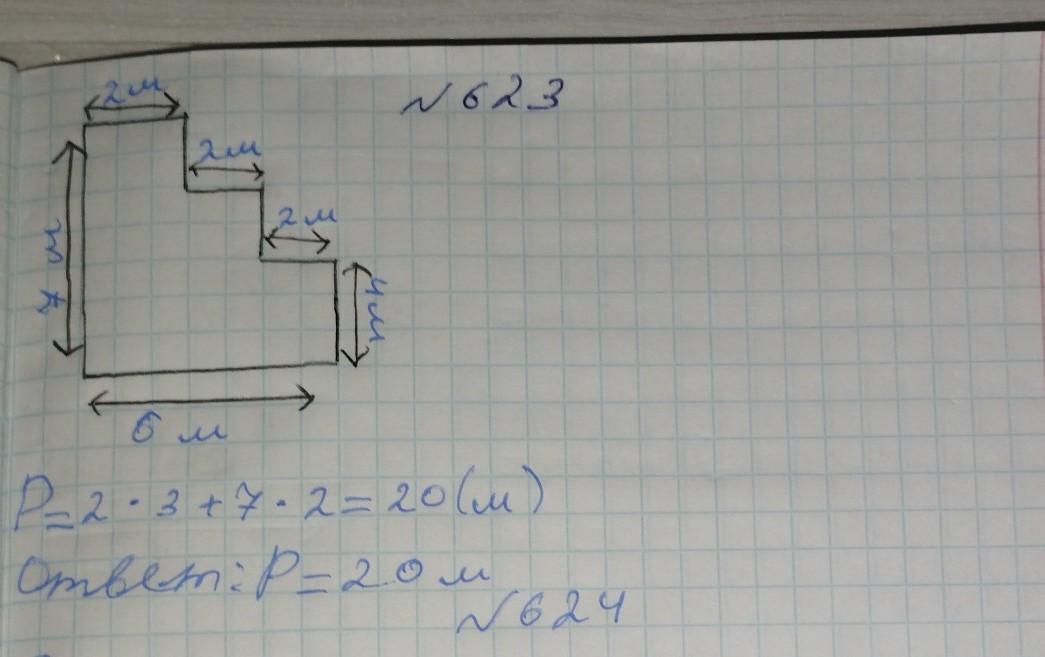 № 623
2 м
2 м
2 м
7 м
4 м
6 м
P = 2 · 3 + 7 · 2 = 20 (м)
Ответ: P = 20 м
№ 624